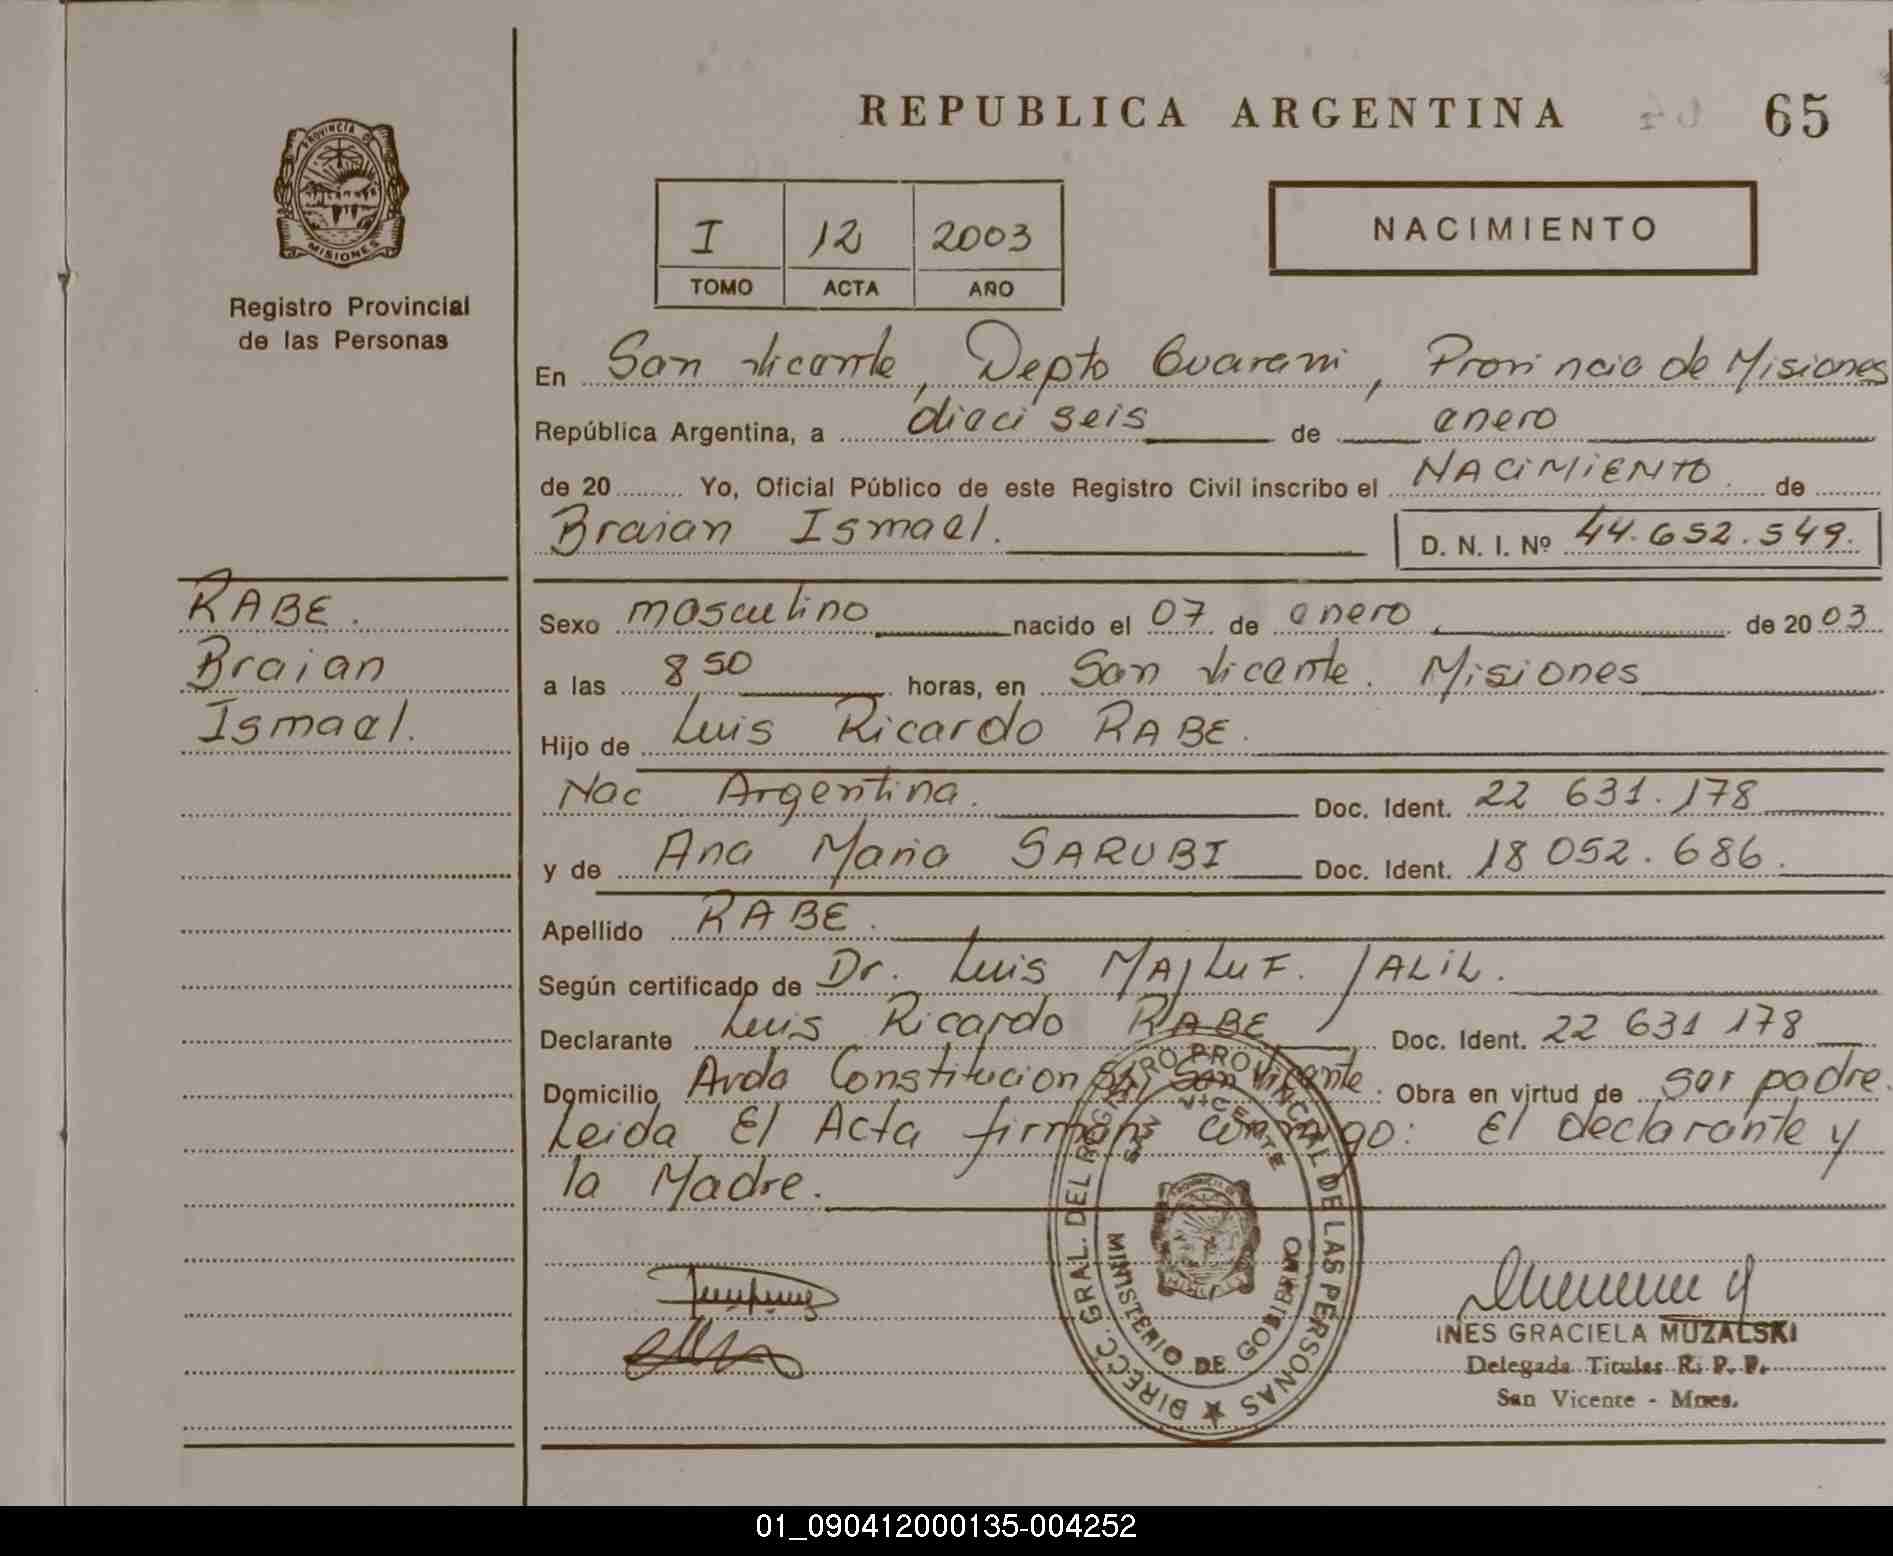 REPUBLICA ARGENTINA 65
PROVINCIA DE
MISIONES
Registro Provincial
de las Personas
I 12 2003
TOMO ACTA AÑO
NACIMIENTO
En San Vicente, Depto Guarani, Provincia de Misiones
República Argentina, a dieciseis de enero
de 20 Yo, Oficial Público de este Registro Civil inscribo el NACIMIENTO de
Braian Ismael. D. N. I. Nº 44.652.549.
RABE.
Braian
Ismael.
Sexo masculino nacido el 07 de enero de 2003
a las 8 50 horas, en San Vicente. Misiones
Hijo de Luis Ricardo RABE.
Nac Argentina. Doc. Ident. 22 631.178
y de Ana Maria SARUBI Doc. Ident. 18 052.686.
Apellido RABE.
Según certificado de Dr. Luis MAJLUF. JALIL.
Declarante Luis Ricardo RABE Doc. Ident. 22 631 178
Domicilio Avda Constitucion San Vicente. Obra en virtud de ser padre.
Leida El Acta firman conmigo: El declarante y
la Madre.
DIRECC. GRAL. DEL REGISTRO PROVINCIAL DE LAS PERSONAS
SAN VICENTE
MINISTERIO DE GOBIERNO
INES GRACIELA MUZALSKI
Delegada Titular R. P. P.
San Vicente - Mnes.
01_090412000135-004252